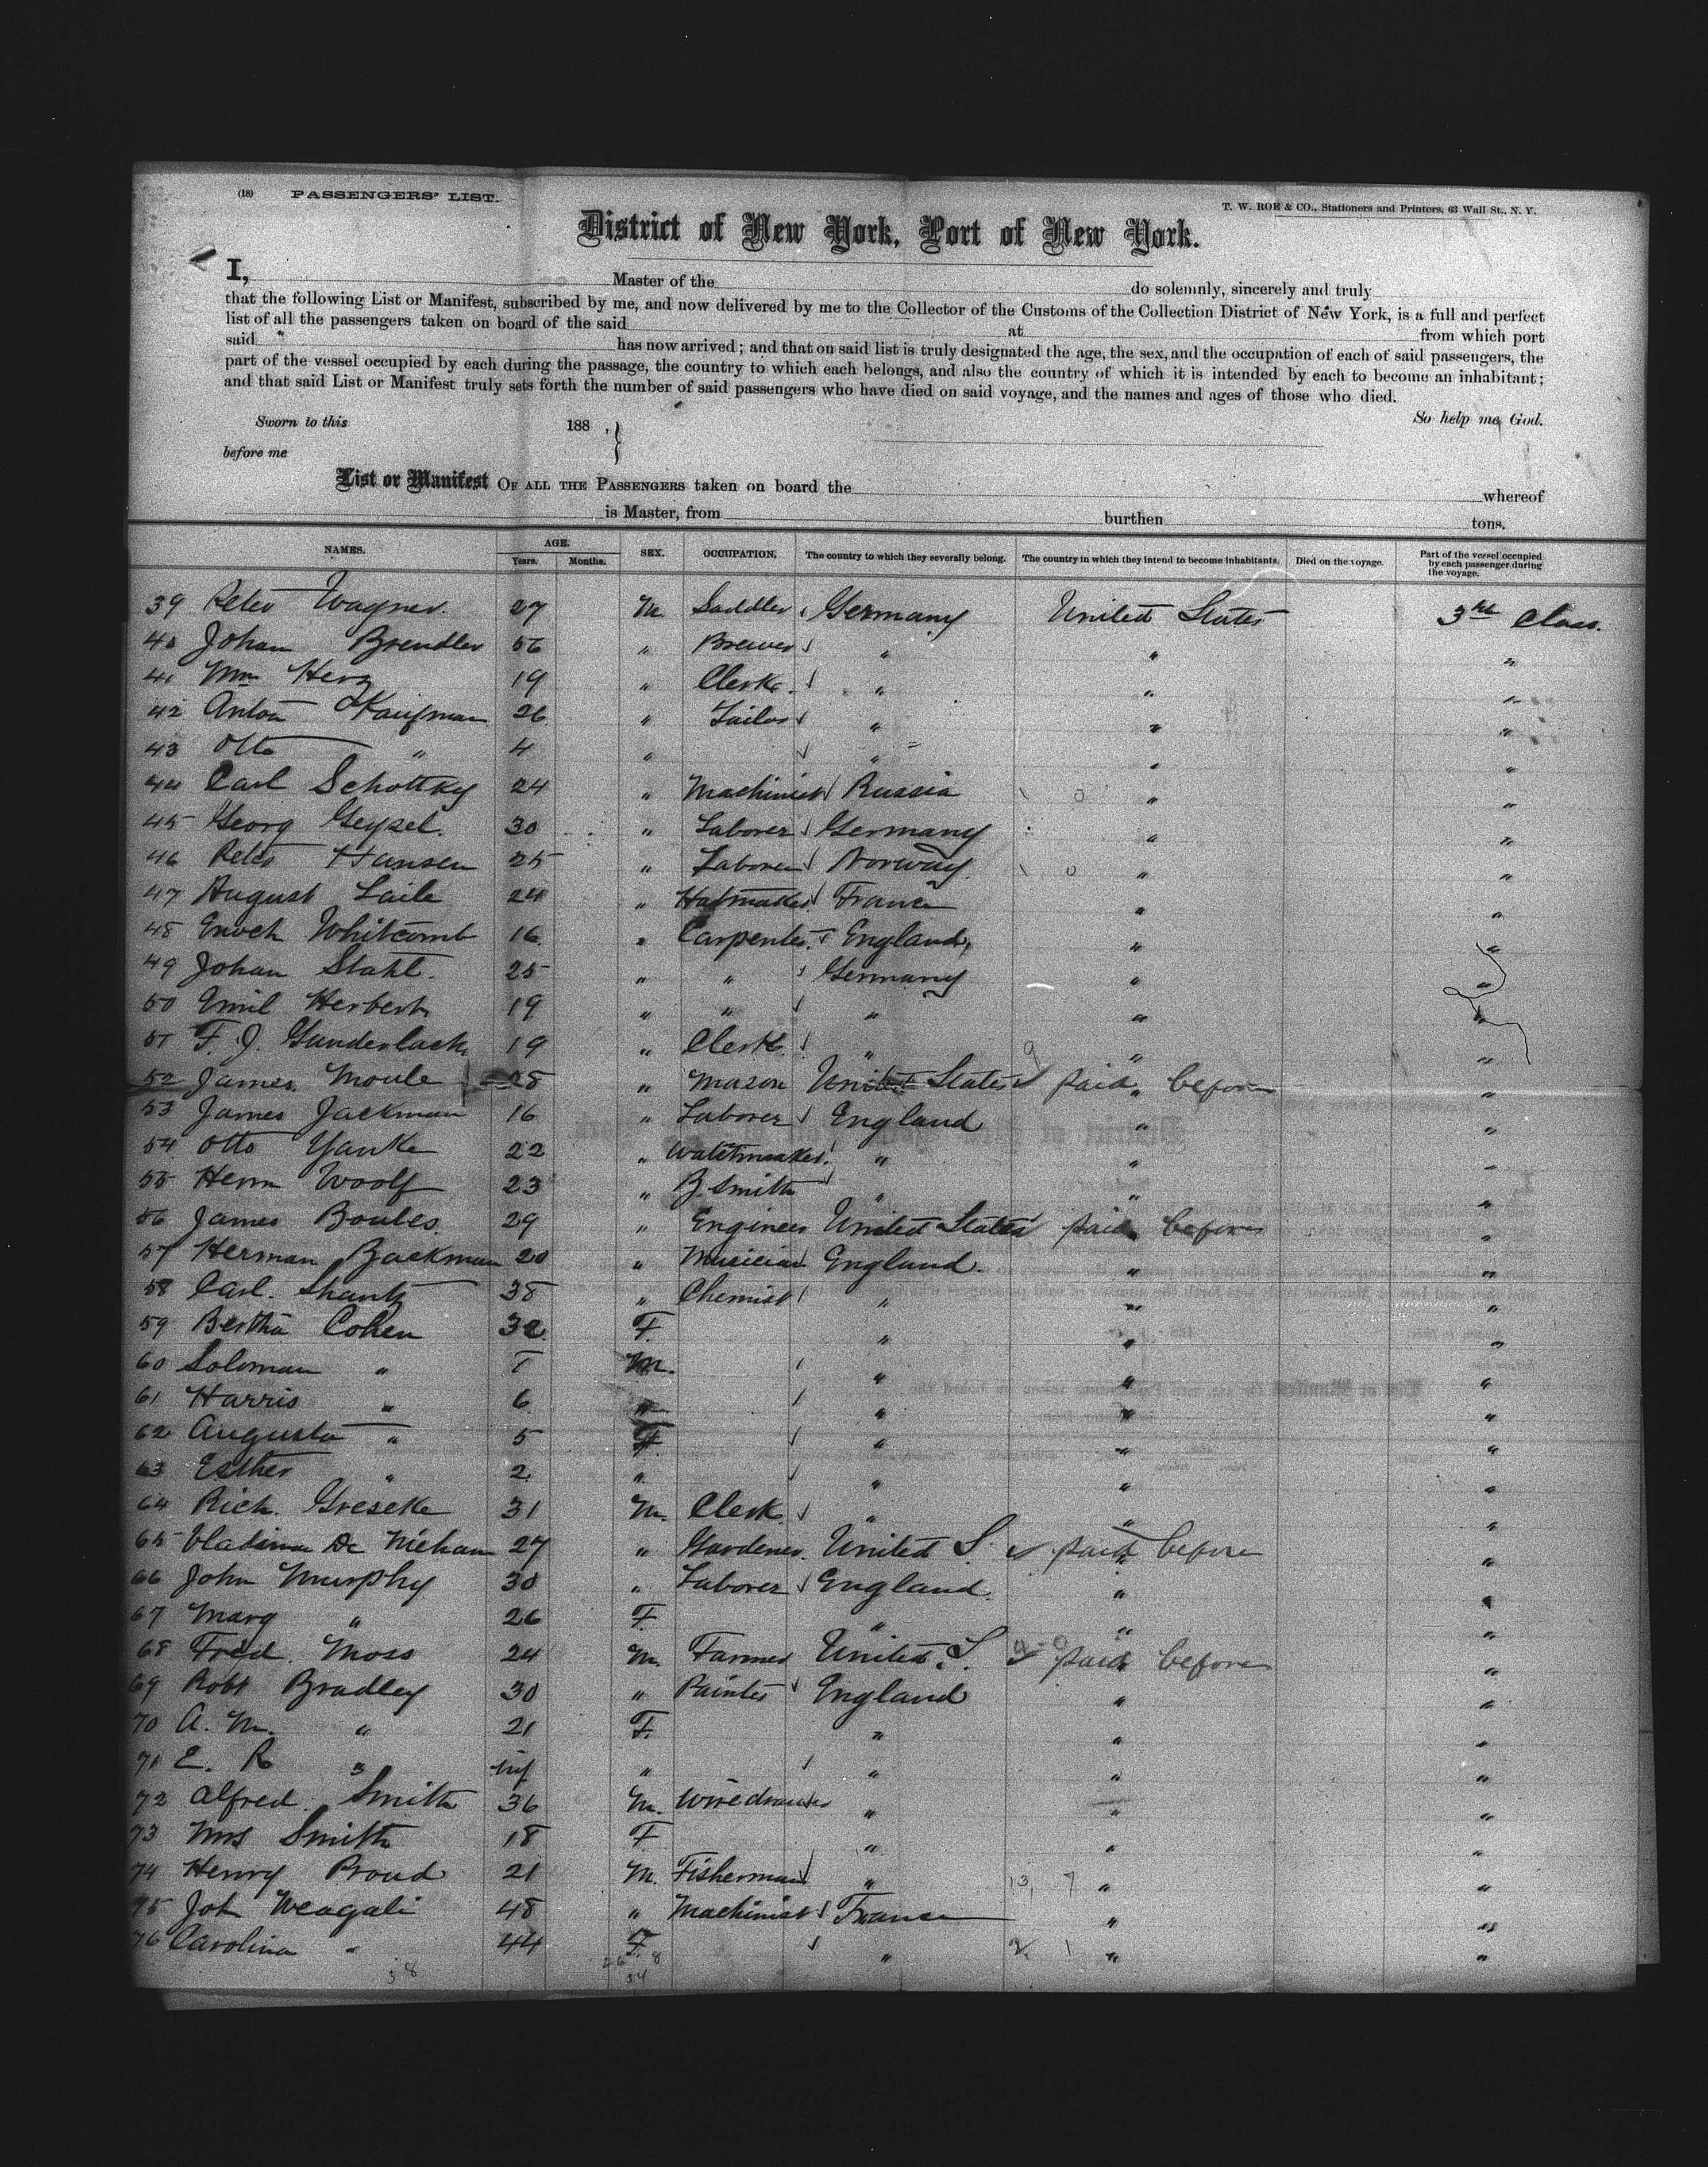 (18) PASSENGERS' LIST.
T. W. ROE & CO., Stationers and Printers, 63 Wall St., N. Y.
District of New York, Port of New York.
I, Master of the do solemnly, sincerely and truly
that the following List or Manifest, subscribed by me, and now delivered by me to the Collector of the Customs of the Collection District of New York, is a full and perfect
list of all the passengers taken on board of the said at from which port
said has now arrived; and that on said list is truly designated the age, the sex, and the occupation of each of said passengers, the
part of the vessel occupied by each during the passage, the country to which each belongs, and also the country of which it is intended by each to become an inhabitant;
and that said List or Manifest truly sets forth the number of said passengers who have died on said voyage, and the names and ages of those who died.
So help me God.
Sworn to this 188 ,
before me
List or Manifest OF ALL THE PASSENGERS taken on board the whereof
is Master, from burthen tons.
NAMES. AGE. Years. Months. SEX. OCCUPATION. The country to which they severally belong. The country in which they intend to become inhabitants. Died on the voyage. Part of the vessel occupied by each passenger during the voyage.
39 Peter Wagner. 27 M. Saddler Germany United States 3rd Class.
40 Johann Brendler 56 " Brewer " " "
41 Wm Herz 19 " Clerk. " " "
42 Anton Kaufman 26 " Tailor " " "
43 Otto " 4 " " " "
44 Carl Schottky 24 " Machinist Russia " "
45 Georg Geysel. 30 " Laborer Germany " "
46 Peter Hansen 25 " Laborer Norway " "
47 August Laile 24 " Hatmaker France " "
48 Enoch Whitcomb 16 " Carpenter England " "
49 Johan Stahl. 25 " " Germany " "
50 Emil Herbert 19 " " " " "
51 F. J. Gunderlach 19 " Clerk " " "
52 James Moule 28 " Mason United States paid before "
53 James Jackman 16 " Laborer England " "
54 Otto Yanke 22 " Watchmaker " " "
55 Herm Woolf 23 " B. Smith " " "
56 James Boules 29 " Engineer United States paid before "
57 Herman Backman 20 " Musician England " "
58 Carl. Shantz 38 " Chemist " " "
59 Bertha Cohen 32 F. " " "
60 Soloman " 7 M. " " "
61 Harris " 6 " " " "
62 Augusta " 5 F. " " "
63 Esther " 2 " " " "
64 Rich. Greseke 31 M. Clerk " " "
65 De 27 " Gardener United S. paid before "
66 John Murphy 30 " Laborer England " "
67 Marg " 26 F. " " "
68 Fred. Moss 24 M. Farmer United S. paid before "
69 Robt Bradley 30 " Painter England " "
70 A. M. " 21 F. " " "
71 E. R " inf " " " "
72 Alfred Smith 36 M. Wiredrawer " " "
73 Mrs Smith 18 F. " " "
74 Henry Proud 21 M. Fisherman " " "
75 Joh Weagali 48 " Machinist France " "
76 Carolina " 44 F. " " "
38 26 8
34